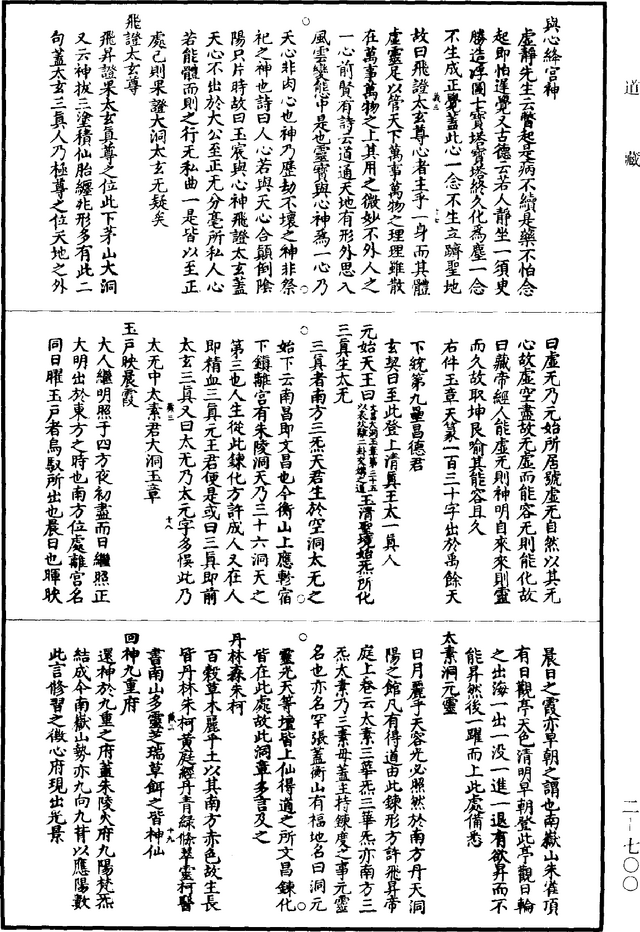 道藏
與心絳宮神
虛靜先生云瞥起是病不續是藥不怕念
起即怕遲覺又古德云若人靜坐一須臾
勝造浮圖七寶塔寶塔終久化為塵一念
不生成正覺蓋此心一念不生立躋聖地
故曰飛證太玄尊心者主乎一身而其體
虛靈足以管天下萬事萬物之理理雖散
在萬事萬物之上其用之微妙不外人之
一心前賢有詩云道通天地有形外思入
風雲變態中是也靈寶與心神為一心乃
天心非肉心也神乃歷劫不壞之神非祭
祀之神也詩曰人心若與天心合顛倒陰
陽只片時故曰玉宸與心神飛證太玄蓋
天心不出於大公至正无分毫所私人心
若能體而則之行无私曲一是皆以至正
處己則果證大洞太玄无疑矣
飛證太玄尊
飛昇證果太玄真尊之位此下茅山大洞
又云神拔三塗積仙胎纏非形多有此二
句蓋太玄三真人乃極尊之位天地之外
曰虛无乃元始所居號虛无自然以其无
心故虛空盡故无虛而能容无則能化故
曰藏帝經人能虛无則神明自來來則靈
而久故取坤艮喻其能容且久
右件玉章天篆一百三十字出於禹餘天
下統第九壘昌德君
玄契曰至此登上清真王太一真人
元始天王曰
玉清聖境始炁所化
三真生太无
三真者南方三炁天君生於空洞太无之
始下云南昌即文昌也今衡山上應軫宿
下鎮離宮有朱陵洞天乃三十六洞天之
第三也人生從此鍊化方許成人又在人
即精血三真元王君便是或曰三真即前
太玄三真又曰太无乃太元字多悞此乃
太无中太素君大洞玉章
玉戸映晨霞
大人繼明照于四方夜初盡而日繼照正
大明出於東方之時也南方位處離宮名
同日曜玉戸者烏馭所出也晨日也暉映
晨日之霞亦早朝之謂也南嶽山朱雀頂
有日觀亭天色清明早朝登此亭觀日輪
之出海一出一没一進一退有欲昇而不
能昇然後一躍而上此處備悉
太素洞元靈
日月麗乎天容光必照然於南方丹天洞
陽之館凡有得道由此鍊形方許飛昇帝
庭上卷云太素三華炁三華炁亦南方三
炁太素乃三素母蓋主持鍊度之事元靈
名也亦名罕張蓋衡山有福地名曰洞元
靈光天等壇皆上仙得道之所文昌鍊化
皆在此處故此洞章多言及之
丹林森朱柯
百穀草木麗乎土以其南方赤色故生長
皆丹林朱柯黃庭經丹青綠條翠靈柯醫
書南山多靈芝瑞草餌之皆神仙
回神九重府
還神於九重之府蓋朱陵火府九陽梵炁
結成今南嶽山勢亦九向九背以應陽數
此言修習之徵心府現出光景
二-七〇〇